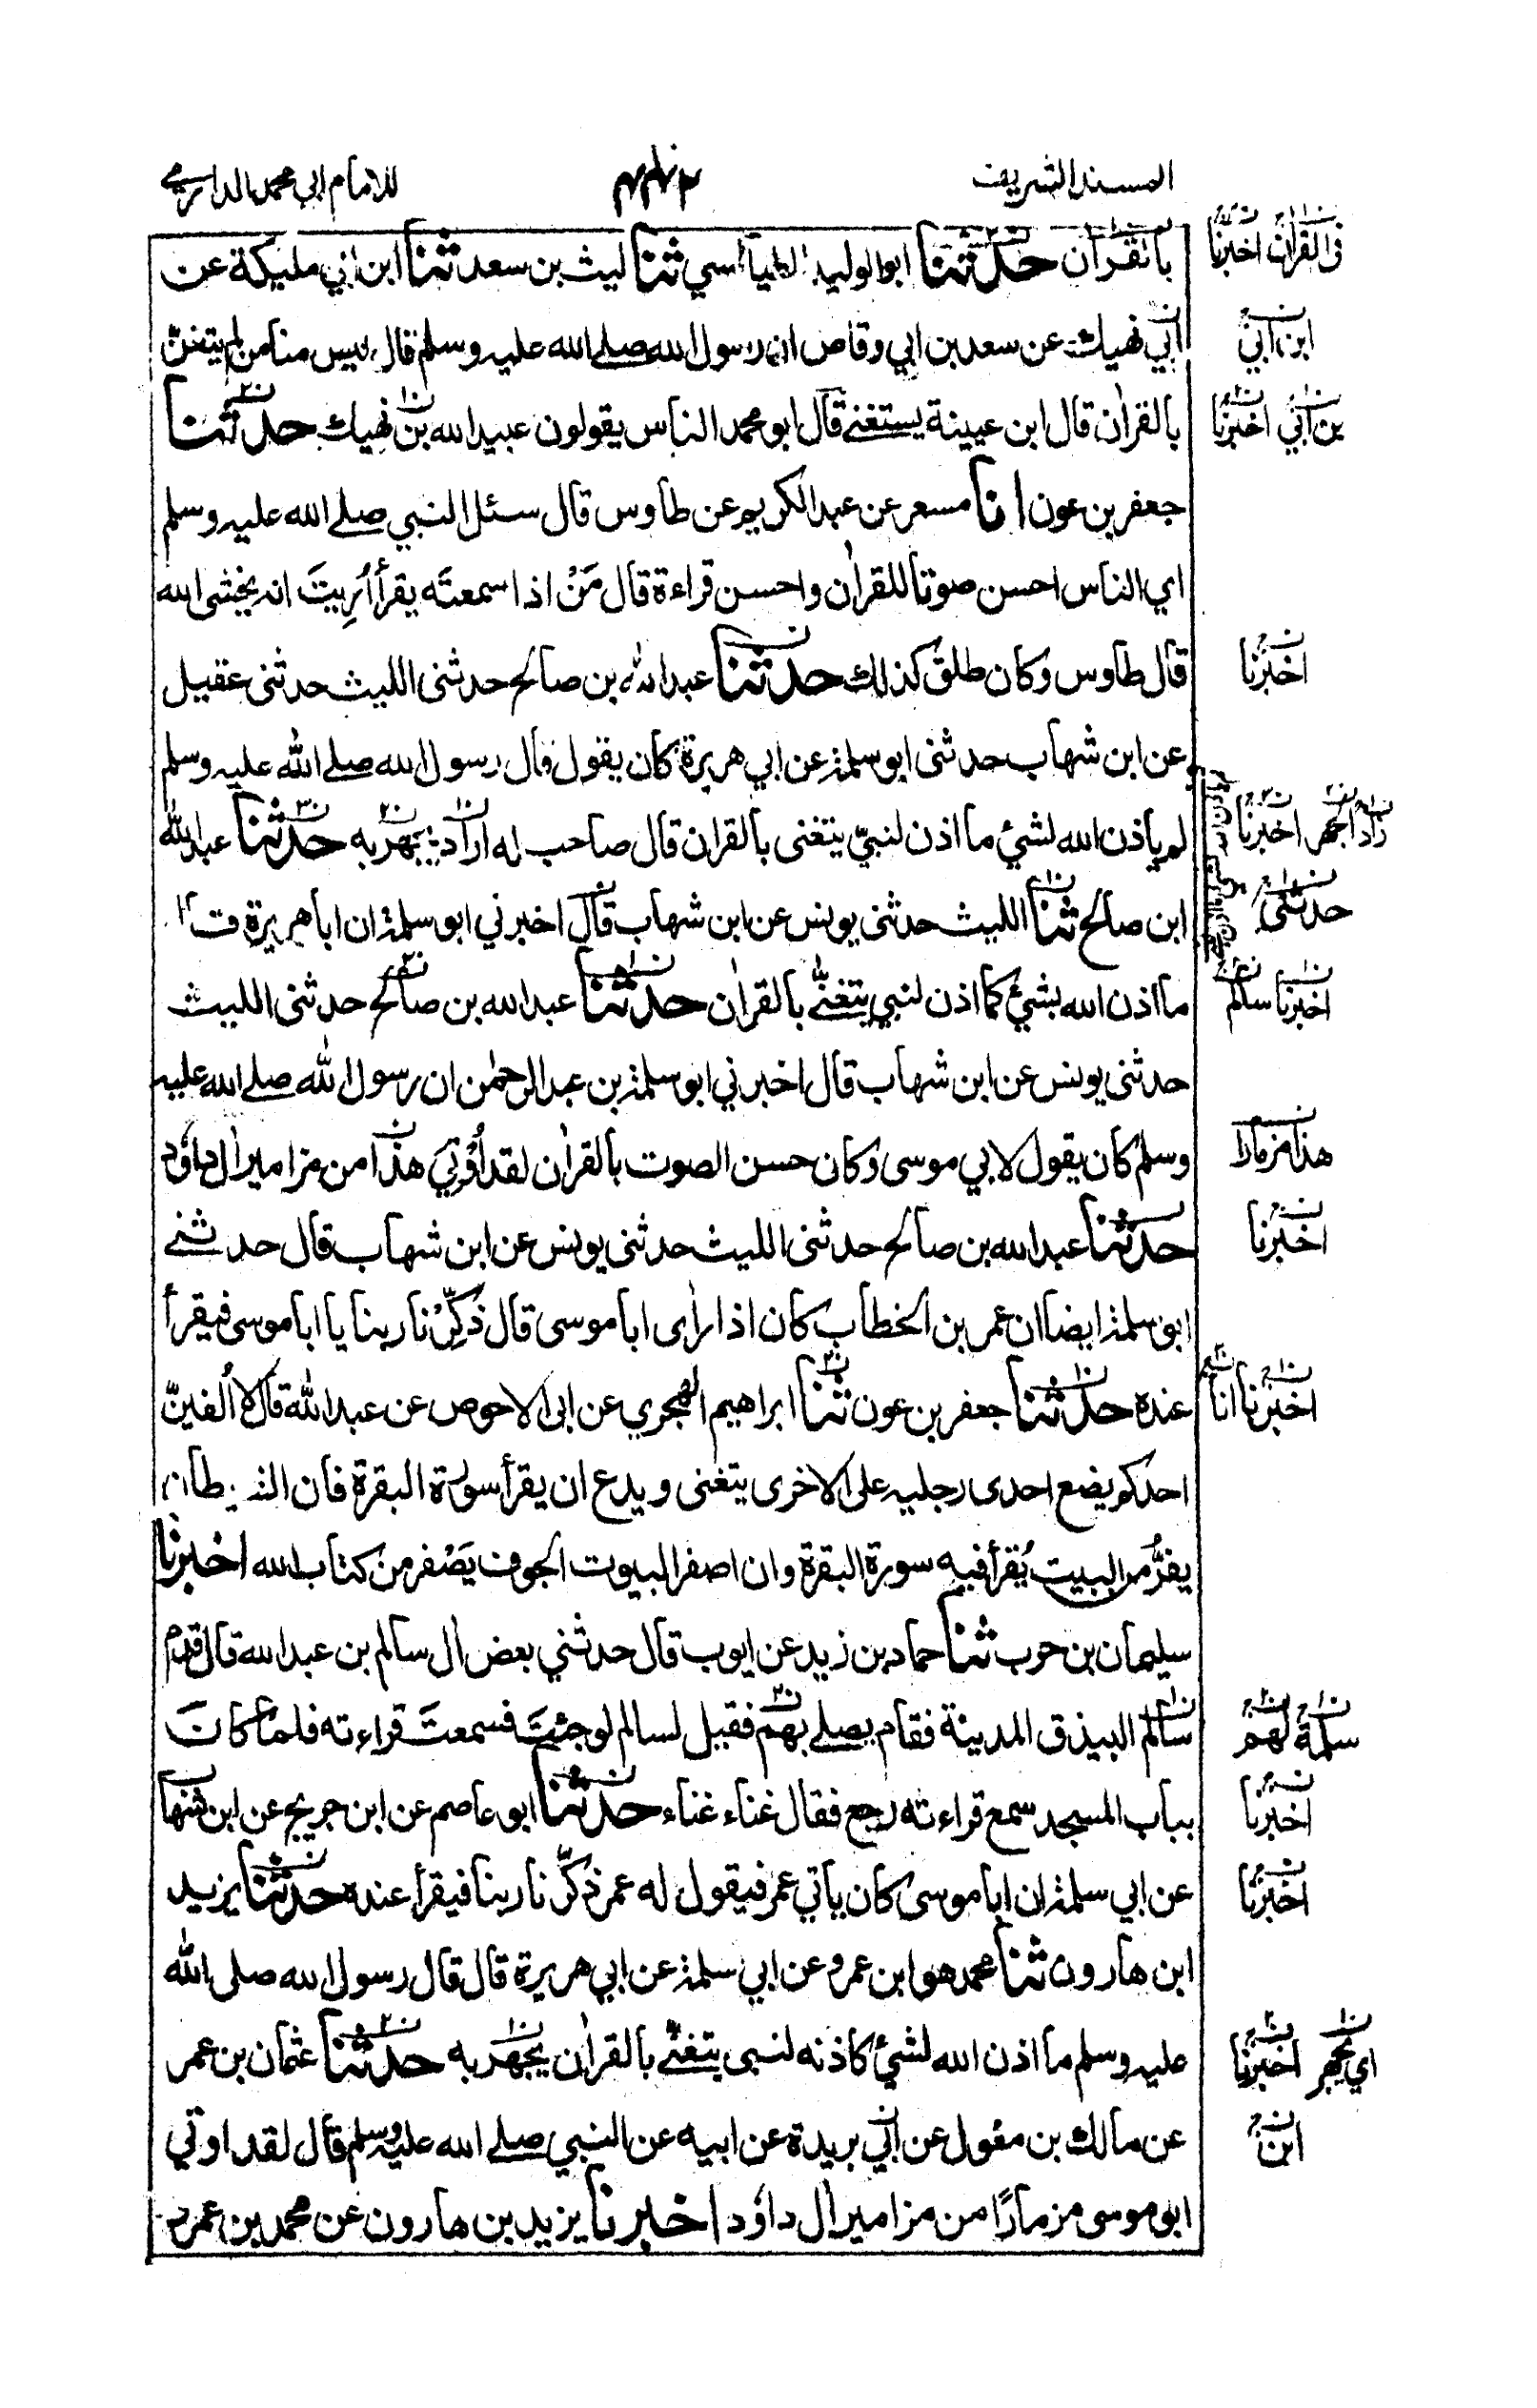 المسند الشريف
للامام ابي محمد الدارمي
بالقرآن حدثنا ابو الوليد الطيالسي ثنا ليث بن سعد ثنا ابن ابي مليكة عن
ابي نهيك عن سعد بن ابي وقاص ان رسول الله صلے الله عليه وسلم قال ليس منا من لم يتغنّ
بالقراٰن قال ابن عيينة يستغنے قال ابو محمد الناس يقولون عبيد الله بن نهيك حدثنا
جعفر بن عون انا مسعر عن عبد الكريم عن طاوس قال سئل النبي صلے الله عليه وسلم
اي الناس احسن صوتا للقراٰن واحسن قراءة قال مَنْ اذا سمعتَه يقرأ اُرِيتَ انه يخشى الله
قال طاوس وكان طلق كذلك حدثنا عبد الله بن صالح حدثنى الليث حدثنى عقيل
عن ابن شهاب حدثنى ابو سلمة عن ابي هريرة كان يقول قال رسول الله صلے الله عليه وسلم
لم ياذن الله لشئ ما اذن لنبيّ يتغنى بالقران قال صاحب له اراد يجهر به حدثنا عبد الله
ابن صالح ثنا الليث حدثنى يونس عن ابن شهاب قال اخبرني ابو سلمة ان ابا هريرة قال
ما اذن الله بشئ كما اذن لنبي يتغنّے بالقراٰن حدثنا عبد الله بن صالح حدثنى الليث
حدثنى يونس عن ابن شهاب قال اخبرني ابو سلمة بن عبد الرحمٰن ان رسول الله صلے الله عليه
وسلم كان يقول لابي موسى وكان حسن الصوت بالقراٰن لقد اُوْتِيَ هذا من مزامير اٰل داؤد
حدثنا عبد الله بن صالح حدثنى الليث حدثنى يونس عن ابن شهاب قال حدثنے
ابو سلمة ايضا ان عمر بن الخطاب كان اذا راٰى ابا موسى قال ذَكِّرْنا ربنا يا ابا موسى فيقرأ
عنده حدثنا جعفر بن عون ثنا ابراهيم الهجري عن ابى الاحوص عن عبد الله قال لا اُلفينّ
احدكم يضع احدى رجليه على الاخرى يتغنى ويدع ان يقرأ سورة البقرة فان الشيطان
يفرُّ من البيت يُقرأ فيه سورة البقرة وان اصفر البيوت الجوف يَصْفر من كتاب الله اخبرنا
سليمان بن حرب ثنا حماد بن زيد عن ايوب قال حدثني بعض اٰل سالم بن عبد الله قال قدم
سالم البيذق المدينة فقام يصلے بهم فقيل لسالم لو جئتَ فسمعتَ قراءته فلما كان
بباب المسجد سمع قراءته رجع فقال غناء غناء حدثنا ابو عاصم عن ابن جريج عن ابن شهاب
عن ابي سلمة ان ابا موسى كان ياتي عمر فيقول له عمر ذكّرنا ربنا فيقرأ عنده حدثنا يزيد
ابن هارون ثنا محمد هو ابن عمرو عن ابي سلمة عن ابي هريرة قال قال رسول الله صلى الله
عليه وسلم ما اذن الله لشئ كاذنه لنبى يتغنّے بالقراٰن يجهر به حدثنا عثمان بن عمر
عن مالك بن مغول عن ابي بريدة عن ابيه عن النبي صلے الله عليه وسلم قال لقد اوتي
ابو موسى مزمارًا من مزامير اٰل داؤد اخبرنا يزيد بن هارون عن محمد بن عمرو
فى القراٰن اخبرنا
ابن ابي
بن ابي اخبرنا
اخبرنا
زاد الجهر اخبرنا
حدثنى
اخبرنا سالم
هذا مزمارا
اخبرنا
اخبرنا انا
سلمة لهم
اخبرنا
اخبرنا
اي يجهر اخبرنا
ابن